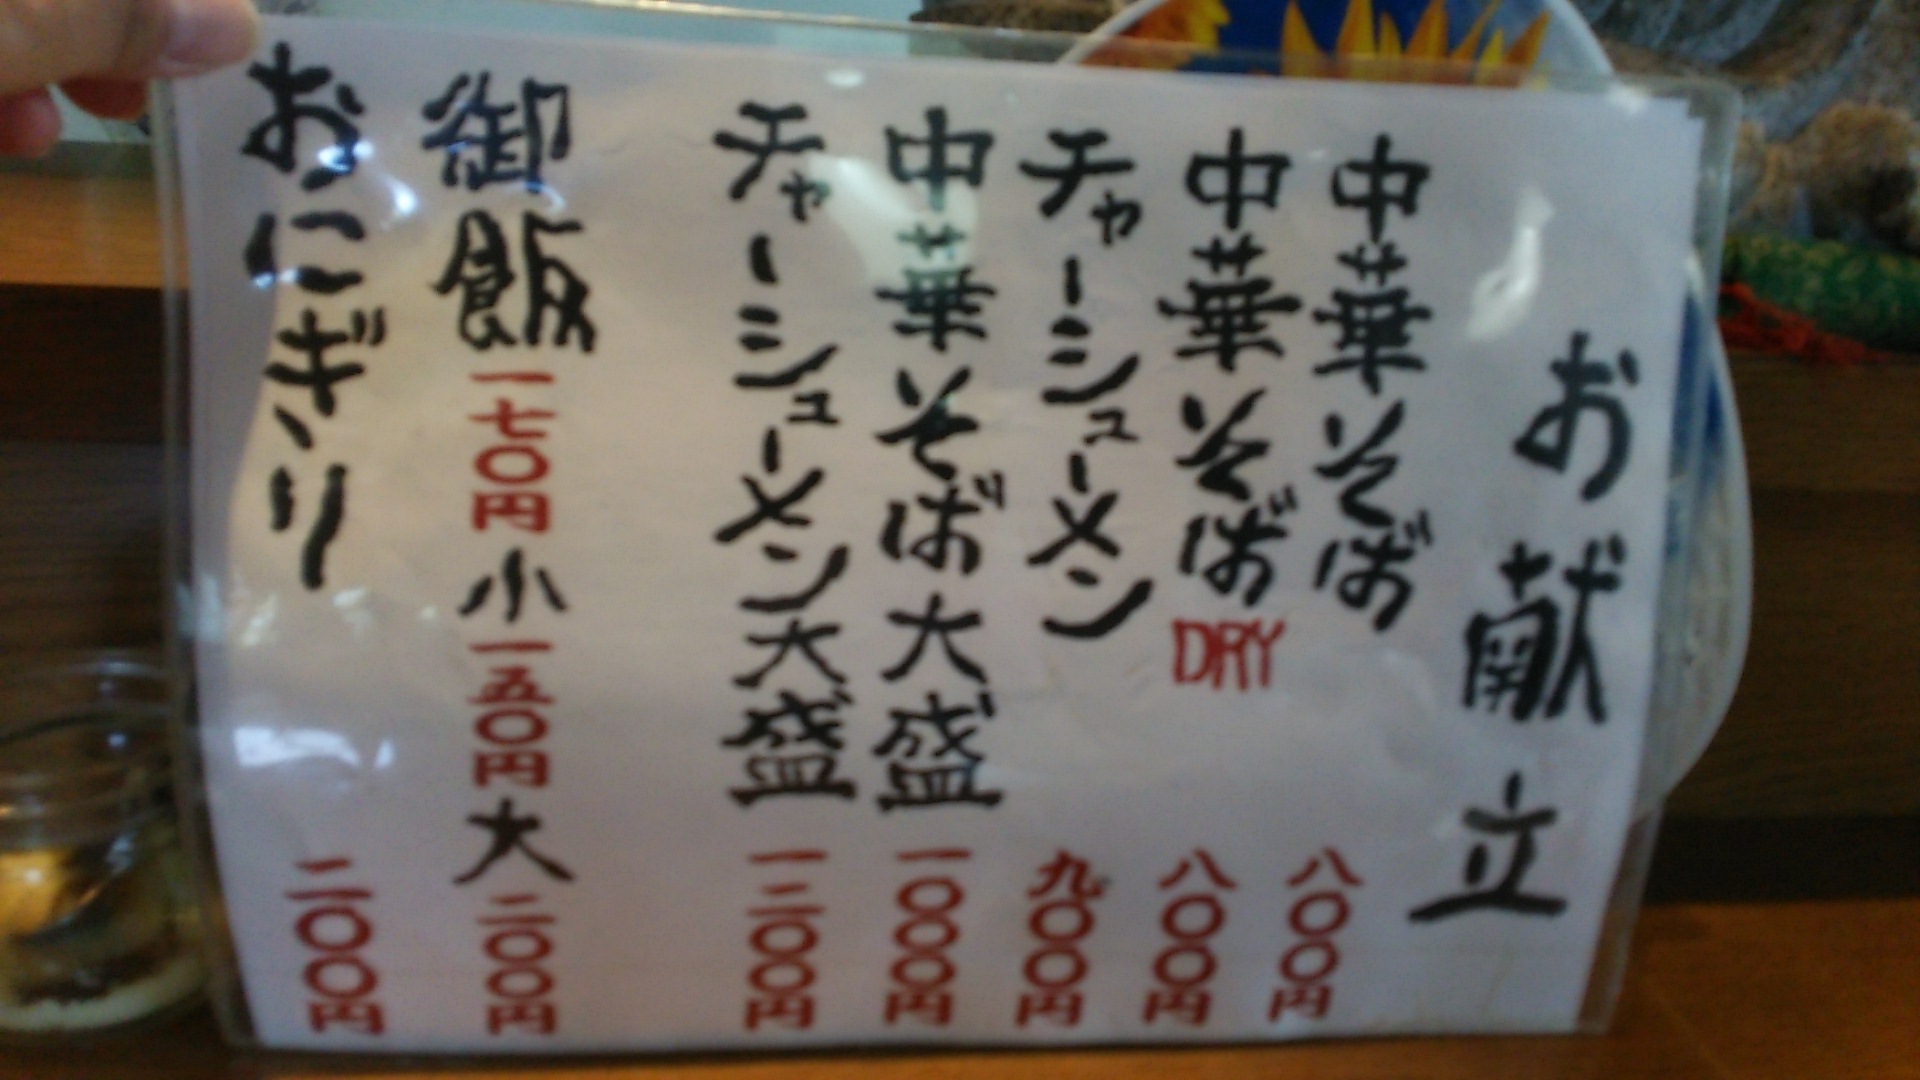 お献立
中華そば 八〇〇円
中華そばDRY 八〇〇円
チャーシューメン 九〇〇円
中華そば大盛 一〇〇〇円
チャーシューメン大盛 一二〇〇円
御飯 一七〇円 小 一五〇円 大 二〇〇円
おにぎり 二〇〇円